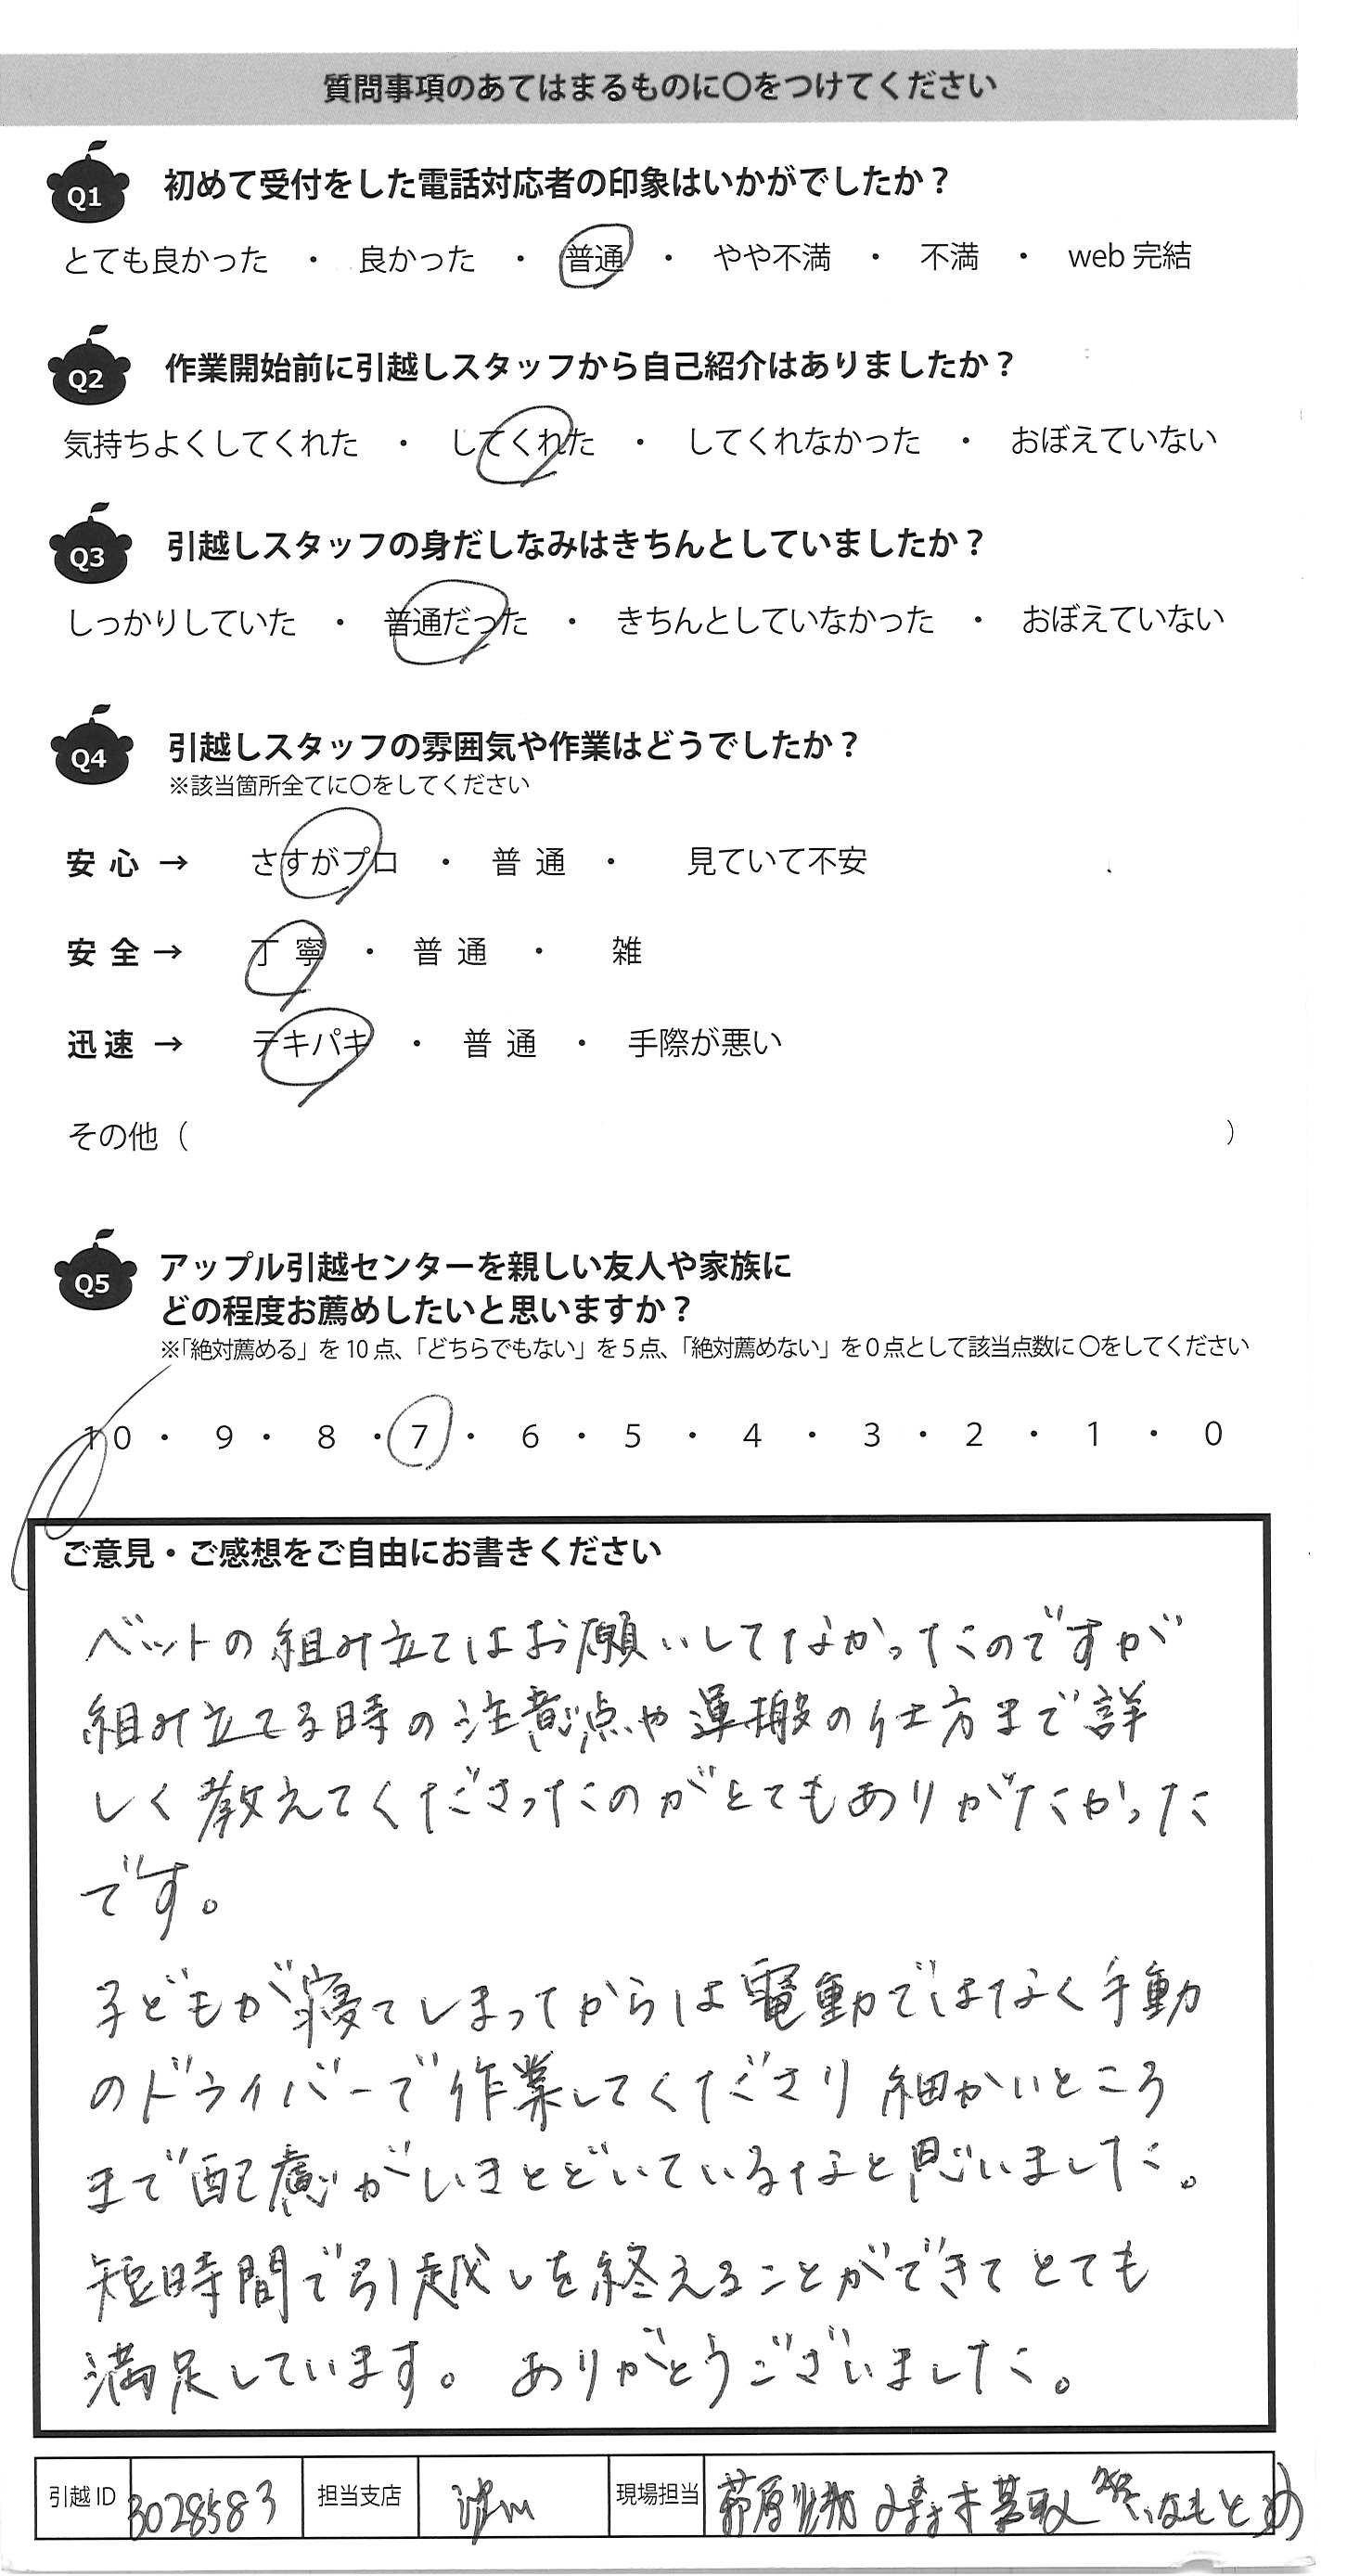 質問事項のあてはまるものに〇をつけてください
Q1 初めて受付をした電話対応者の印象はいかがでしたか？
とても良かった ・ 良かった ・ 普通 ・ やや不満 ・ 不満 ・ web 完結
Q2 作業開始前に引越しスタッフから自己紹介はありましたか？
気持ちよくしてくれた ・ してくれた ・ してくれなかった ・ おぼえていない
Q3 引越しスタッフの身だしなみはきちんとしていましたか？
しっかりしていた ・ 普通だった ・ きちんとしていなかった ・ おぼえていない
Q4 引越しスタッフの雰囲気や作業はどうでしたか？
※該当箇所全てに〇をしてください
安心 → さすがプロ ・ 普通 ・ 見ていて不安
安全 → 丁寧 ・ 普通 ・ 雑
迅速 → テキパキ ・ 普通 ・ 手際が悪い
その他（ ）
Q5 アップル引越センターを親しい友人や家族に
どの程度お薦めしたいと思いますか？
※「絶対薦める」を10点、「どちらでもない」を5点、「絶対薦めない」を0点として該当点数に〇をしてください
10 ・ 9 ・ 8 ・ 7 ・ 6 ・ 5 ・ 4 ・ 3 ・ 2 ・ 1 ・ 0
ご意見・ご感想をご自由にお書きください
ベットの組み立てはお願いしてなかったのですが
組み立てる時の注意点や運搬の仕方まで詳
しく教えてくださったのがとてもありがたかった
です。
子どもが寝てしまってからは電動ではなく手動
のドライバーで作業してくださり細かいところ
まで配慮がいきとどいているなと思いました。
短時間で引越しを終えることができてとても
満足しています。ありがとうございました。
引越ID 3028583 担当支店 現場担当